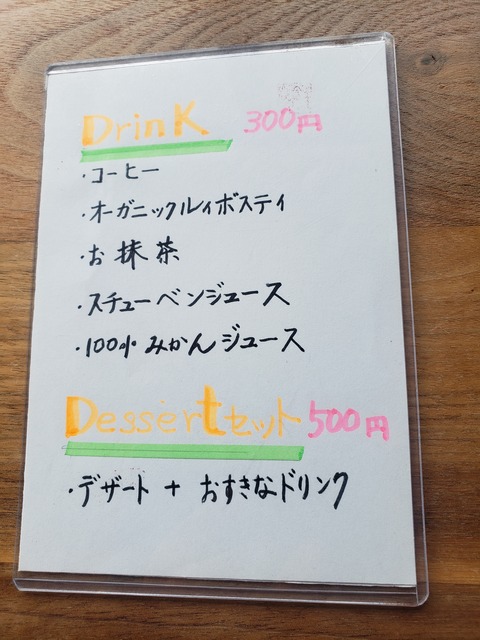 Drink 300円
・コーヒー
・オーガニックルイボスティ
・お抹茶
・スチューベンジュース
・100% みかんジュース
Dessertセット 500円
・デザート + おすきなドリンク